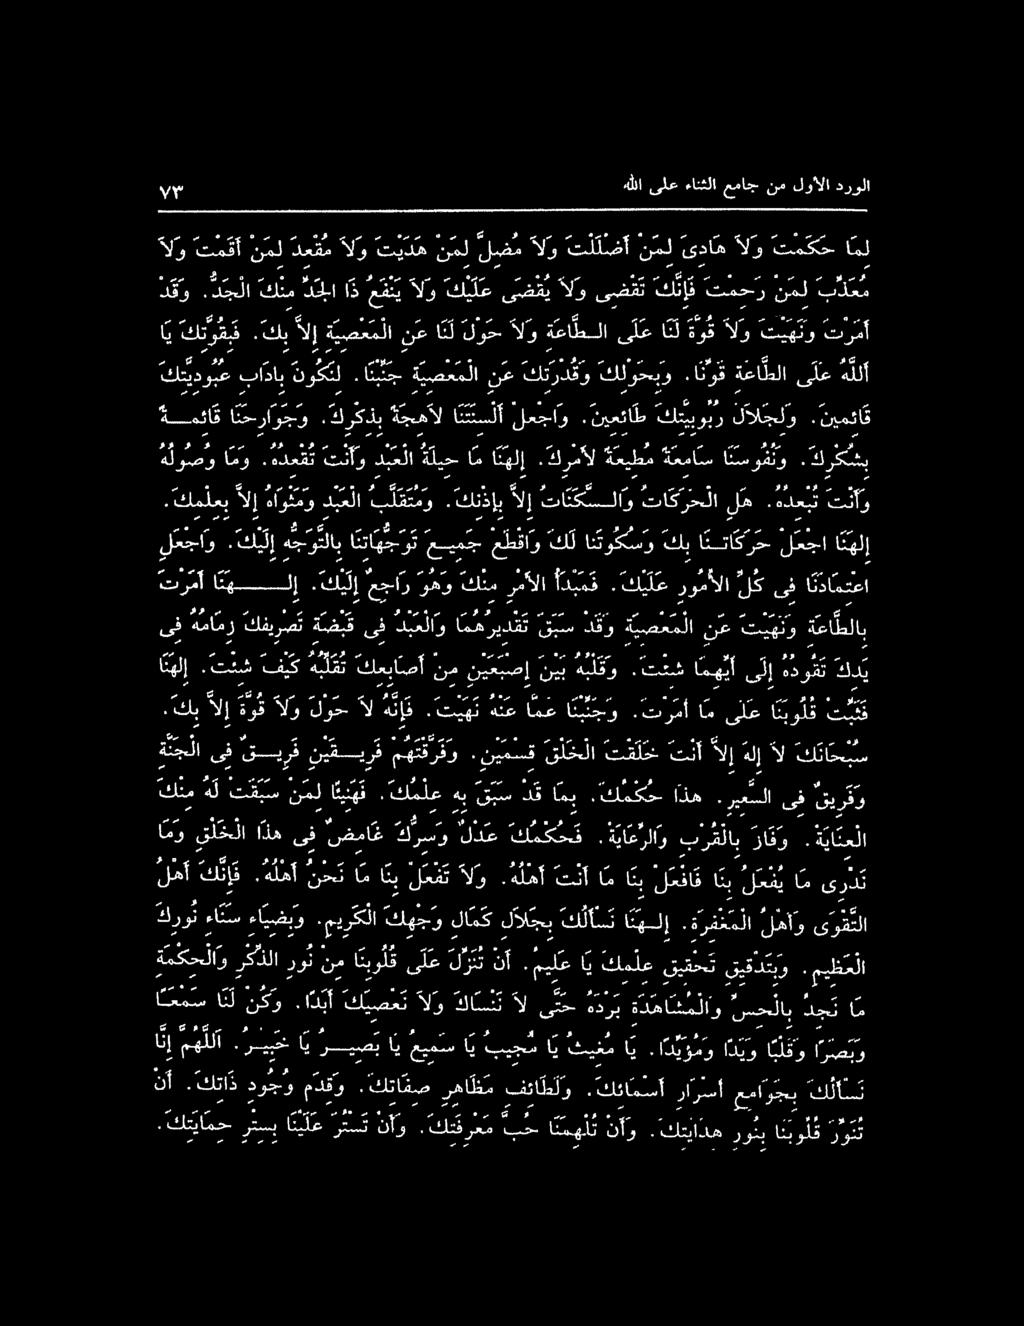 الورد الأول من جامع الثناء على الله ٧٣
لِمَا حَكَمْتَ وَلاَ هَادِيَ لِمَنْ أَضْلَلْتَ وَلاَ مُضِلَّ لِمَنْ هَدَيْتَ وَلاَ مُقْعِدَ لِمَنْ أَقَمْتَ وَلاَ
مُعَذِّبَ لِمَنْ رَحِمْتَ فَإِنَّكَ تَقْضِى وَلاَ يُقْضَى عَلَيْكَ وَلاَ يَنْفَعُ ذَا الْجَدِّ مِنْكَ الْجَدُّ. وَقَدْ
أَمَرْتَ وَنَهَيْتَ وَلاَ قُوَّةَ لَنَا عَلَى الـطَّاعَةِ وَلاَ حَوْلَ لَنَا عَنِ الْمَعْصِيَةِ إِلاَّ بِكَ. فَبِقُوَّتِكَ يَا
أَللَّهُ عَلَى الطَّاعَةِ قَوِّنَا. وَبِحَوْلِكَ وَقُدْرَتِكَ عَنِ الْمَعْصِيَةِ جَنِّبْنَا. لِنَكُونَ بِآدَابِ عُبُودِيَّتِكَ
قَائِمِينَ. وَلِجَلاَلِ رُبُوبِيَّتِكَ طَائِعِينَ. وَاجْعَلْ أَلْسِنَتَنَا لاَهِجَةً بِذِكْرِكَ. وَجَوَارِحَنَا قَائِمـــةً
بِشُكْرِكَ. وَنُفُوسَنَا سَامِعَةً مُطِيعَةً لأَمْرِكَ. إِلهَنَا مَا حِيلَةُ الْعَبْدِ وَأَنْتَ تُقْعِدُهُ. وَمَا وُصُولُهُ
وَأَنْتَ تُبْعِدُهُ. هَلِ الْحَرَكَاتُ وَالـسَّكَنَاتُ إِلاَّ بِإِذْنِكَ. وَمُتَقَلَّبُ الْعَبْدِ وَمَثْوَاهُ إِلاَّ بِعِلْمِكَ.
إِلهَنَا اجْعَلْ حَرَكَاتِـنَا بِكَ وَسُكُوتَنَا لَكَ وَاقْطَعْ جَمِيـعَ تَوَجُّهَاتِنَا بِالتَّوَجُّهِ إِلَيْكَ. وَاجْعَلِ
اعْتِمَادَنَا فِى كُلِّ الأُمُورِ عَلَيْكَ. فَمَبْدَأُ الأَمْرِ مِنْكَ وَهُوَ رَاجِعٌ إِلَيْكَ. إِلـــــهَنَا أَمَرْتَ
بِالطَّاعَةِ وَنَهَيْتَ عَنِ الْمَعْصِيَةِ وَقَدْ سَبَقَ تَقْدِيرُهُمَا وَالْعَبْدُ فِى قَبْضَةِ تَصْرِيفِكَ زِمَامُهُ فِى
يَدِكَ تَقُودُهُ إِلَى أَيِّهِمَا شِئْتَ. وَقَلْبُهُ بَيْنَ إِصْبَعَيْنِ مِنْ أَصَابِعِكَ تُقَلِّبُهُ كَيْفَ شِئْتَ. إِلهَنَا
فَثَبِّتْ قُلُوبَنَا عَلَى مَا أَمَرْتَ. وَجَنِّبْنَا عَمَّا عَنْهُ نَهَيْتَ. فَإِنَّهُ لاَ حَوْلَ وَلاَ قُوَّةَ إِلاَّ بِكَ.
سُبْحَانَكَ لاَ إِلهَ إِلاَّ أَنْتَ خَلَقْتَ الْخَلْقَ قِسْمَيْنِ. وَفَرَّقْتَهُمْ فَرِيـقَيْنِ فَرِيــقٌ فِى الْجَنَّةِ
وَفَرِيقٌ فِى السَّعِيرِ. هذَا حُكْمُكَ. بِمَا قَدْ سَبَقَ بِهِ عِلْمُكَ. فَهَنِيئًا لِمَنْ سَبَقَتْ لَهُ مِنْكَ
الْعِنَايَةُ. وَفَازَ بِالْقُرْبِ وَالرِّعَايَةِ. فَحُكْمُكَ عَدْلٌ وَسِرُّكَ غَامِضٌ فِى هذَا الْخَلْقِ وَمَا
نَدْرِى مَا يُفْعَلُ بِنَا فَافْعَلْ بِنَا مَا أَنْتَ أَهْلُهُ. وَلاَ تَفْعَلْ بِنَا مَا نَحْنُ أَهْلُهُ. فَإِنَّكَ أَهْلُ
التَّقْوَى وَأَهْلُ الْمَغْفِرَةِ. إِلـهَنَا نَسْأَلُكَ بِجَلاَلِ كَمَالِ وَجْهِكَ الْكَرِيمِ. وَبِضِيَاءِ سَنَاءِ نُورِكَ
الْعَظِيمِ. وَبِتَدْقِيقِ تَحْقِيقِ عِلْمِكَ يَا عَلِيمُ. أَنْ تُنَزِّلَ عَلَى قُلُوبِنَا مِنْ نُورِ الذِّكْرِ وَالْحِكْمَةِ
مَا نَجِدُ بِالْحِسِّ وَالْمُشَاهَدَةِ بَرْدَهُ حَتَّى لاَ نَنْسَاكَ وَلاَ نَعْصِيَكَ أَبَدًا. وَكُنْ لَنَا سَمْعًـا
وَبَصَرًا وَقَلْبًا وَيَدًا وَمُؤَيِّدًا. يَا مُغِيثُ يَا مُجِيبُ يَا سَمِيعُ يَا بَصِيـــرُ يَا خَبِيـرُ. اَللَّهُمَّ إِنَّا
نَسْأَلُكَ بِجَوَامِعِ أَسْرَارِ أَسْمَائِكَ. وَلَطَائِفِ مَظَاهِرِ صِفَاتِكَ. وَقِدَمِ وُجُودِ ذَاتِكَ. أَنْ
تُنَوِّرَ قُلُوبَنَا بِنُورِ هِدَايَتِكَ. وَأَنْ تُلْهِمَنَا حُبَّ مَعْرِفَتِكَ. وَأَنْ تَسْتُرَ عَلَيْنَا بِسِتْرِ حِمَايَتِكَ.